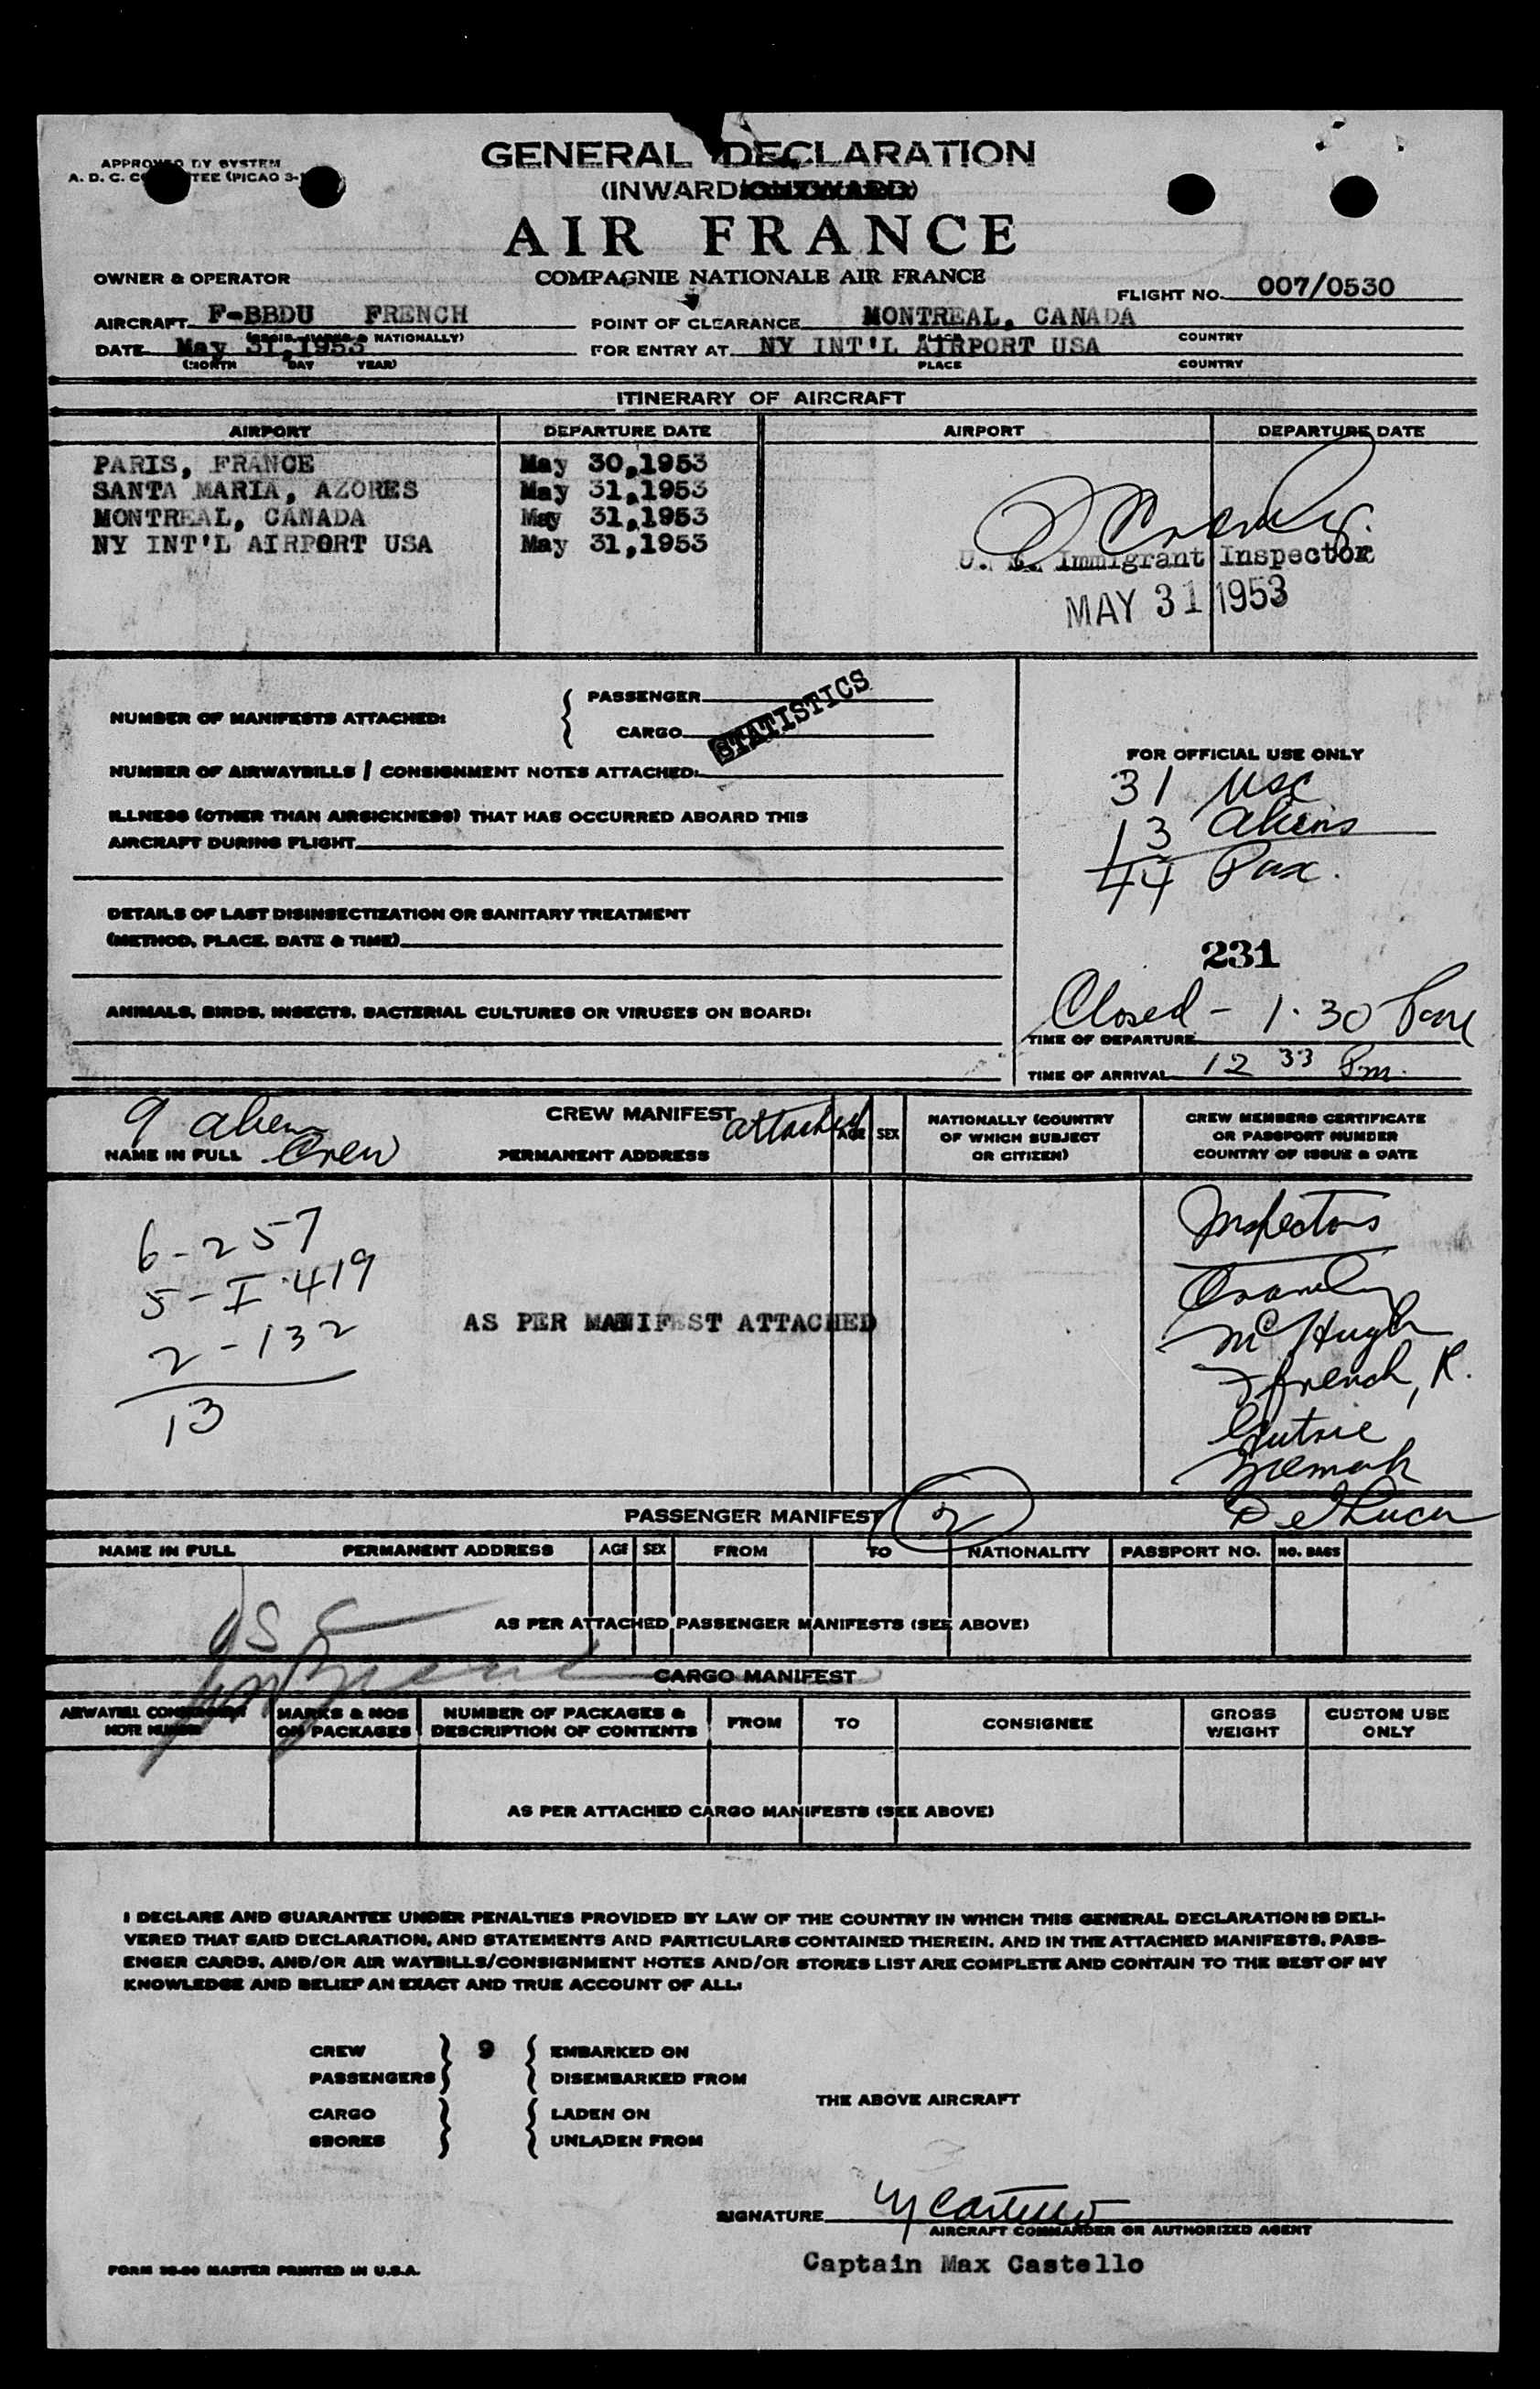 APPROVED BY SYSTEM
A. D. C. (PICAO 3-
GENERAL DECLARATION
(INWARD
AIR FRANCE
COMPAGNIE NATIONALE AIR FRANCE
OWNER & OPERATOR
FLIGHT NO. 007/0530
AIRCRAFT F-BBDU FRENCH
POINT OF CLEARANCE MONTREAL, CANADA
NATIONALLY)
COUNTRY
DATE May 31,1953
FOR ENTRY AT NY INT'L AIRPORT USA
(MONTH DAY YEAR)
PLACE COUNTRY
ITINERARY OF AIRCRAFT
AIRPORT DEPARTURE DATE AIRPORT DEPARTURE DATE
PARIS, FRANCE May 30,1953
SANTA MARIA, AZORES May 31,1953
MONTREAL, CANADA May 31,1953
NY INT'L AIRPORT USA May 31,1953
U. S. Immigrant Inspector
MAY 31 1953
NUMBER OF MANIFESTS ATTACHED:
PASSENGER
CARGO
STATISTICS
NUMBER OF AIRWAYBILLS / CONSIGNMENT NOTES ATTACHED:
ILLNESS (OTHER THAN AIRSICKNESS) THAT HAS OCCURRED ABOARD THIS
AIRCRAFT DURING FLIGHT
DETAILS OF LAST DISINSECTIZATION OR SANITARY TREATMENT
(METHOD, PLACE, DATE & TIME)
ANIMALS, BIRDS, INSECTS, BACTERIAL CULTURES OR VIRUSES ON BOARD:
FOR OFFICIAL USE ONLY
31 USC
13 aliens
44 Pax.
231
Closed - 1.30 Pm
TIME OF DEPARTURE
TIME OF ARRIVAL 12 33 Pm.
9 alien
Crew
CREW MANIFEST attached
NAME IN FULL
PERMANENT ADDRESS
AGE
SEX
NATIONALLY (COUNTRY
OF WHICH SUBJECT
OR CITIZEN)
CREW MEMBERS CERTIFICATE
OR PASSPORT NUMBER
COUNTRY OF ISSUE & DATE
6-257
5-I-419
2-132
13
AS PER MANIFEST ATTACHED
Inspectors
McHugh
French, R.
Gutrie
De Luca
PASSENGER MANIFEST 2
NAME IN FULL PERMANENT ADDRESS AGE SEX FROM TO NATIONALITY PASSPORT NO. NO. BAGS
AS PER ATTACHED PASSENGER MANIFESTS (SEE ABOVE)
CARGO MANIFEST
AIRWAYBILL CONSIGNMENT
NOTE NUMBER
MARKS & NOS
ON PACKAGES
NUMBER OF PACKAGES &
DESCRIPTION OF CONTENTS
FROM
TO
CONSIGNEE
GROSS
WEIGHT
CUSTOM USE
ONLY
AS PER ATTACHED CARGO MANIFESTS (SEE ABOVE)
I DECLARE AND GUARANTEE UNDER PENALTIES PROVIDED BY LAW OF THE COUNTRY IN WHICH THIS GENERAL DECLARATION IS DELI-
VERED THAT SAID DECLARATION, AND STATEMENTS AND PARTICULARS CONTAINED THEREIN, AND IN THE ATTACHED MANIFESTS, PASS-
ENGER CARDS, AND/OR AIR WAYBILLS/CONSIGNMENT NOTES AND/OR STORES LIST ARE COMPLETE AND CONTAIN TO THE BEST OF MY
KNOWLEDGE AND BELIEF AN EXACT AND TRUE ACCOUNT OF ALL:
CREW 9 EMBARKED ON
PASSENGERS DISEMBARKED FROM
THE ABOVE AIRCRAFT
CARGO LADEN ON
STORES UNLADEN FROM
SIGNATURE M Castello
AIRCRAFT COMMANDER OR AUTHORIZED AGENT
Captain Max Castello
MASTER PRINTED IN U.S.A.